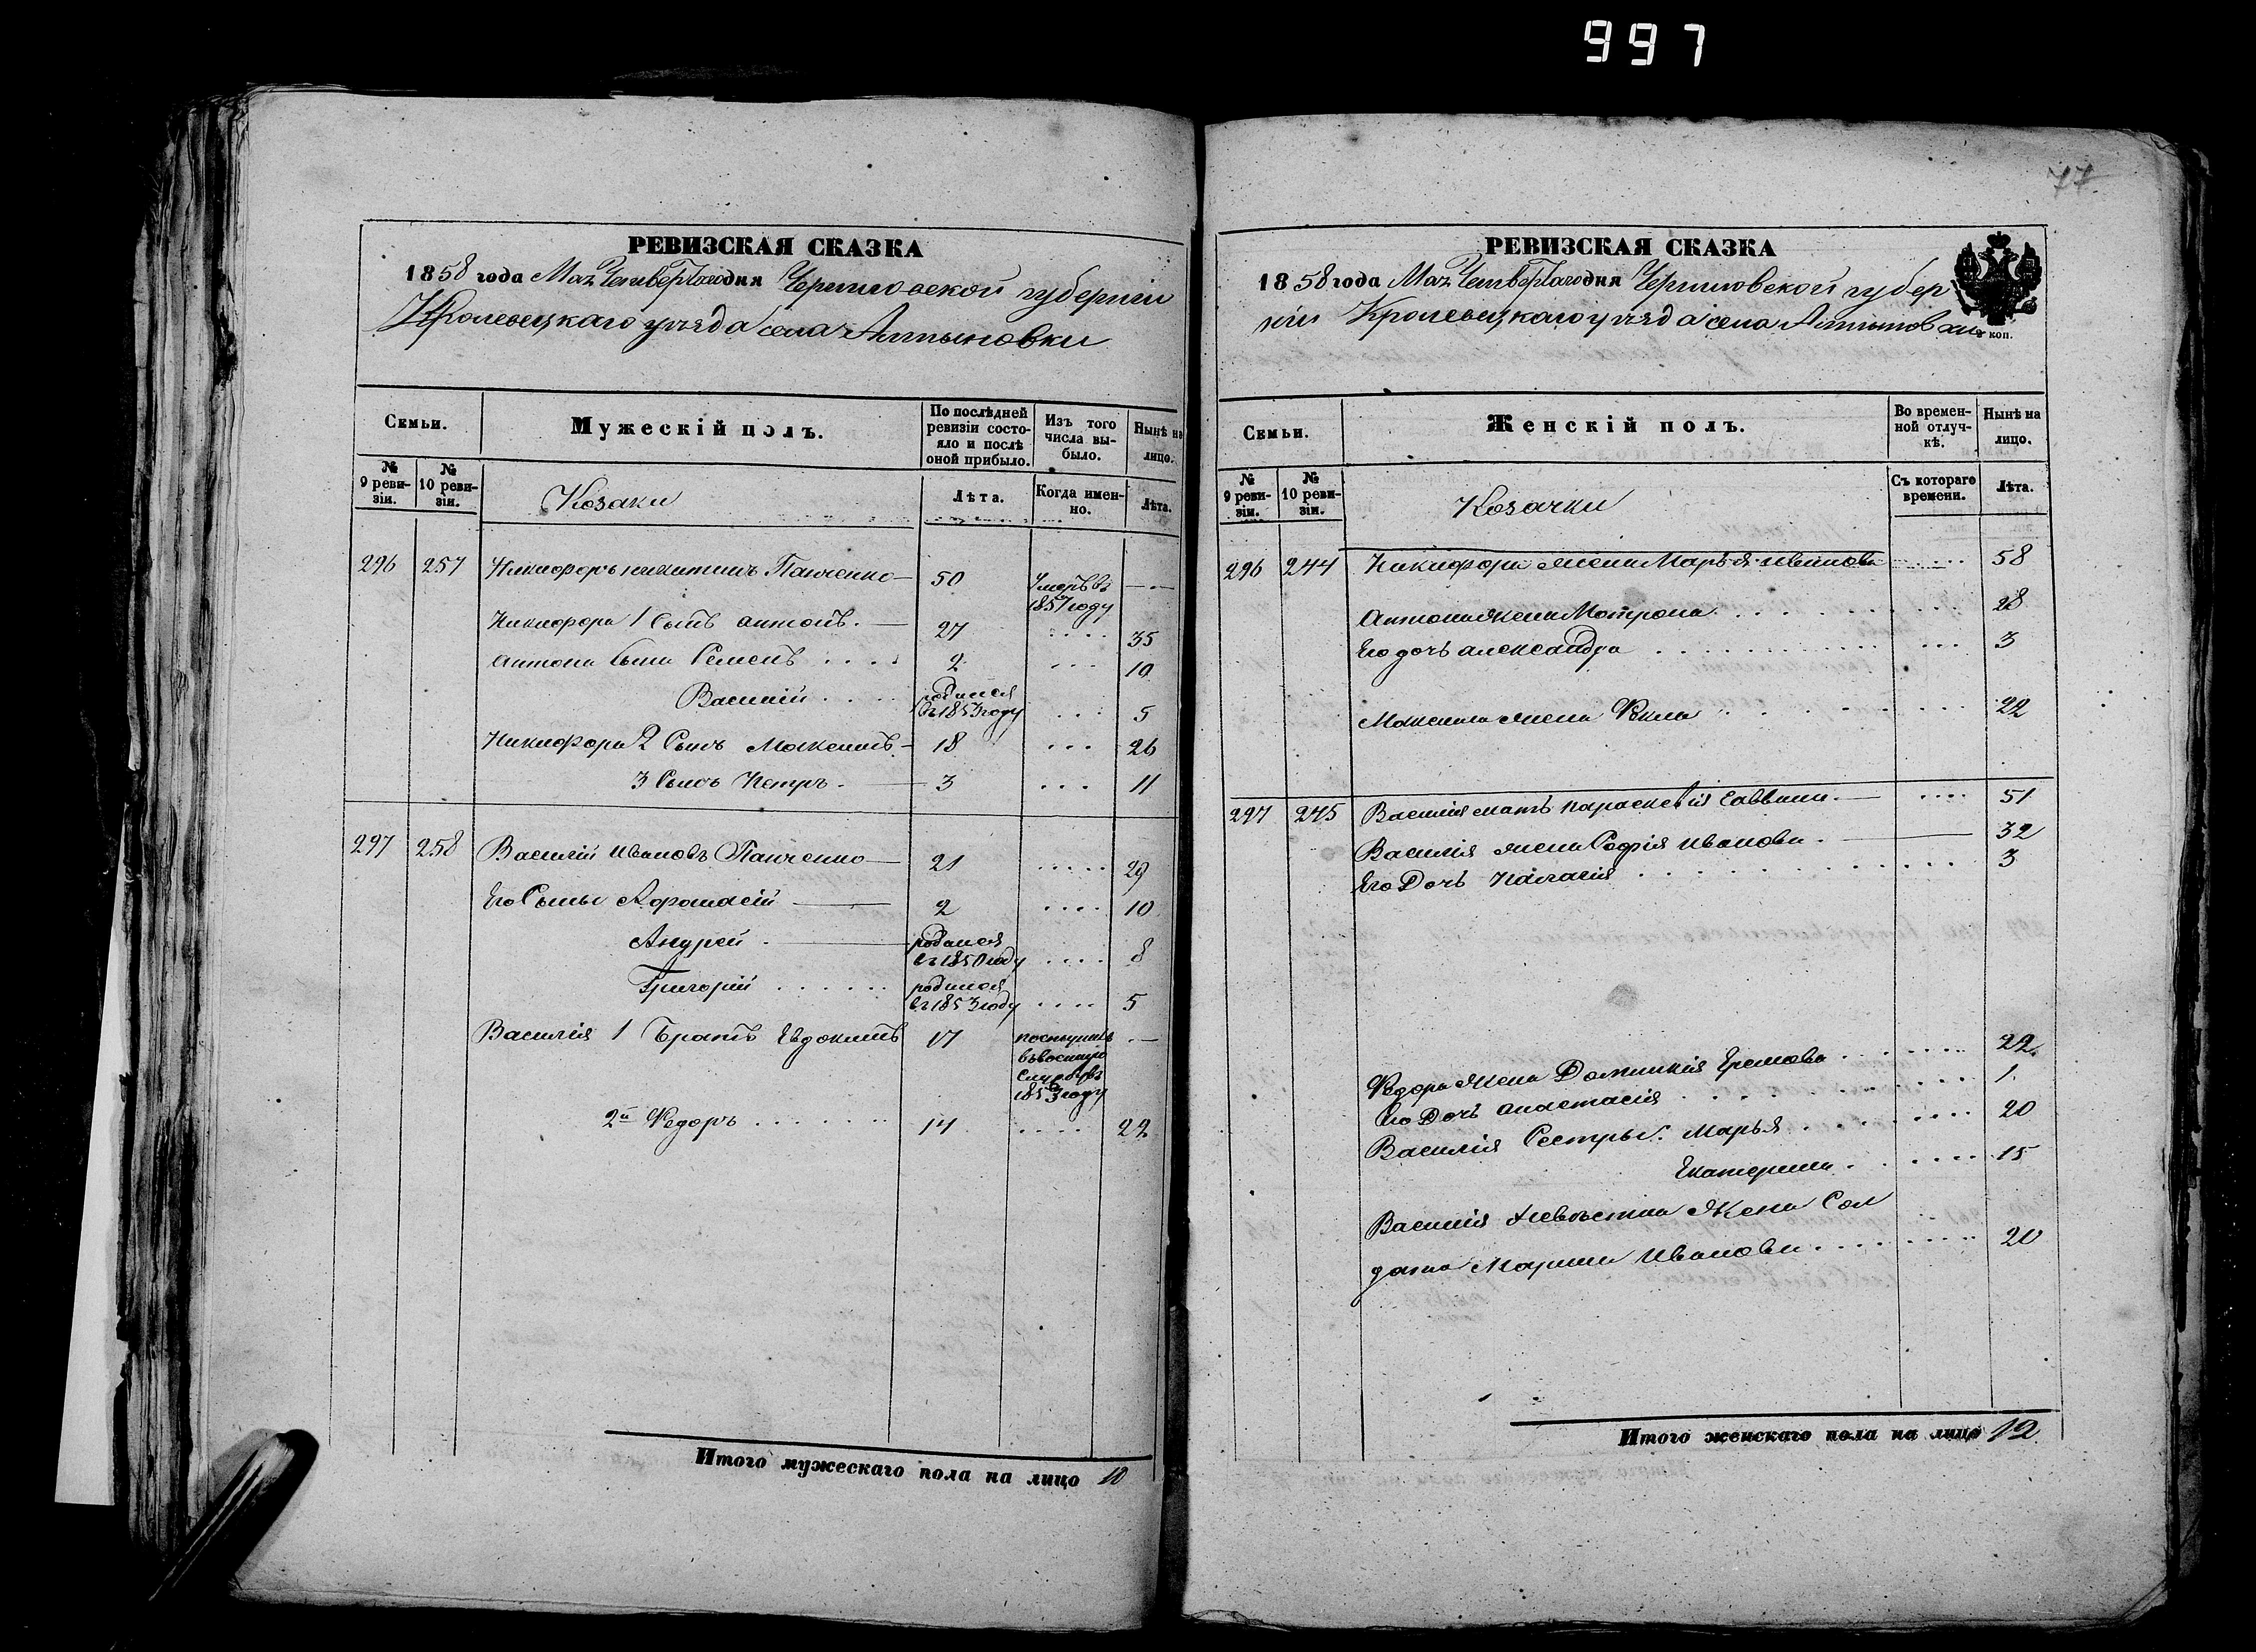 997
77
РЕВИЗСКАЯ СКАЗКА
1858 года Мая Четвертого дня Черниговской губерніи
Кролевецкаго уѣзда села Алтыновки
Семьи.
Мужескій полъ.
По послѣдней ревизіи состояло и послѣ оной прибыло.
Изъ того числа выбыло.
Нынѣ на лицо.
№ 9 ревизіи.
№ 10 ревизіи.
Козаки
Лѣта.
Когда именно.
Лѣта.
296 257 Никифоръ никитинъ Панченко 50 Умеръ въ 1857 году —
Никифора 1 Сынъ антонъ. 27 .... 35
Антона Сыны Семенъ .... 2 ... 10
Василій .... родился въ 1853 году ... 5
Никифора 2 Сынъ Максимъ 18 ... 26
3 Сынъ Петръ. 3 ... 11
297 258 Василій ивановъ Панченко 21 ..... 29
Его Сыны Афонасій 2 .... 10
Андрей. родился въ 1850 году .... 8
Григорій ...... родился въ 1853 году .... 5
Василія 1 Братъ Евдокимъ 17 поступилъ въ военную службу въ 1853 году —
2й Федоръ ....... 14 .... 22
Итого мужескаго пола на лицо 10
РЕВИЗСКАЯ СКАЗКА
1858 года Мая Четвертого дня Черниговской губер
ніи Кролевецкаго уѣзда села Алтыновки
коп.
Семьи.
Женскій полъ.
Во временной отлучкѣ.
Нынѣ на лицо.
№ 9 ревизіи.
№ 10 ревизіи.
Козачки
Съ котораго времени.
Лѣта.
296 244 Никифора жена Марья иванова ..... 58
Антона жена Мотрона ........ 28
Его дочь александра ............ 3
Максима жена Фекла ........ 22
297 245 Василія мать параскевія Саввина. .... 51
Василія жена Софія иванова. 32
Его Дочь Палагія .......... 3
Федора жена Домникія Еремова ....... 22
Его Дочь анастасія ........ 1
Василія Сестры: Марья ........ 20
Екатерина. ...... 15
Василія Невѣстка Жена Сол
дата Марина Иванова ........ 20
Итого женскаго пола на лицо 12